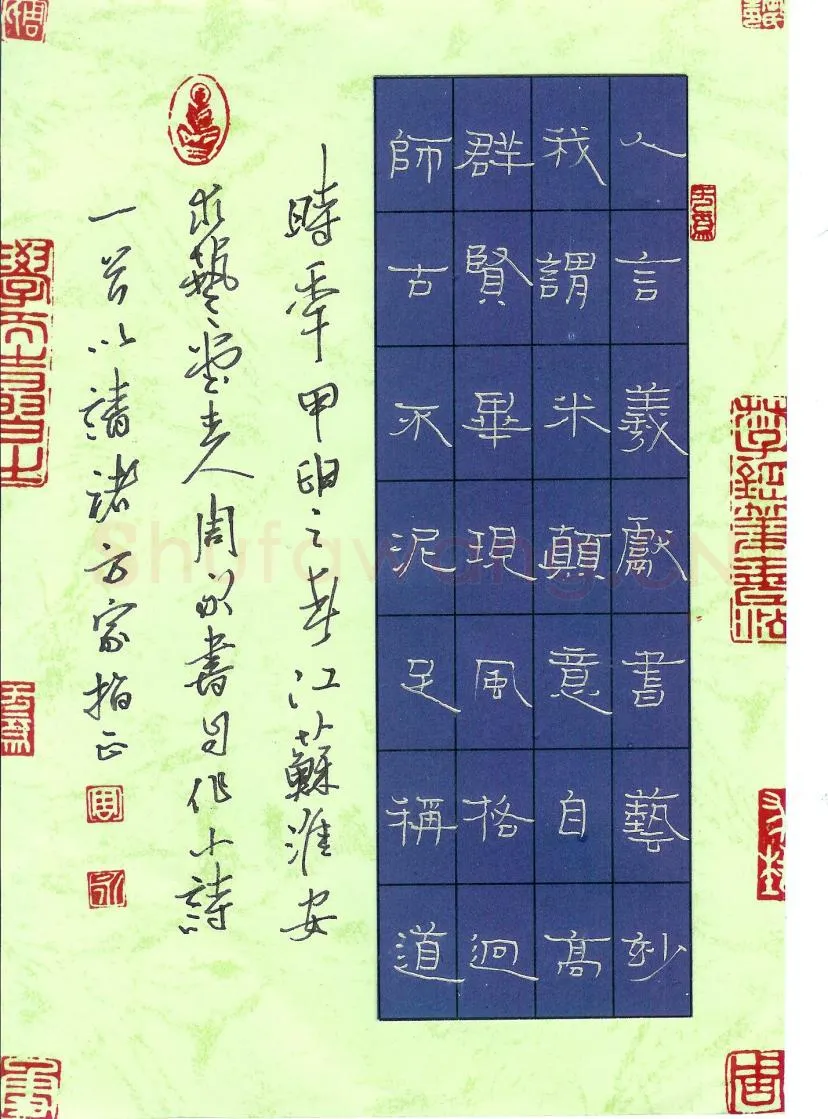 人言羲獻書藝妙
我謂米顛意自高
群賢畢現風格迥
師古不泥足稱道
時甲申之春江蘇淮安
求藝堂主人周永書自作小詩
一首以請諸方家指正
周
永
Shufawang.CN